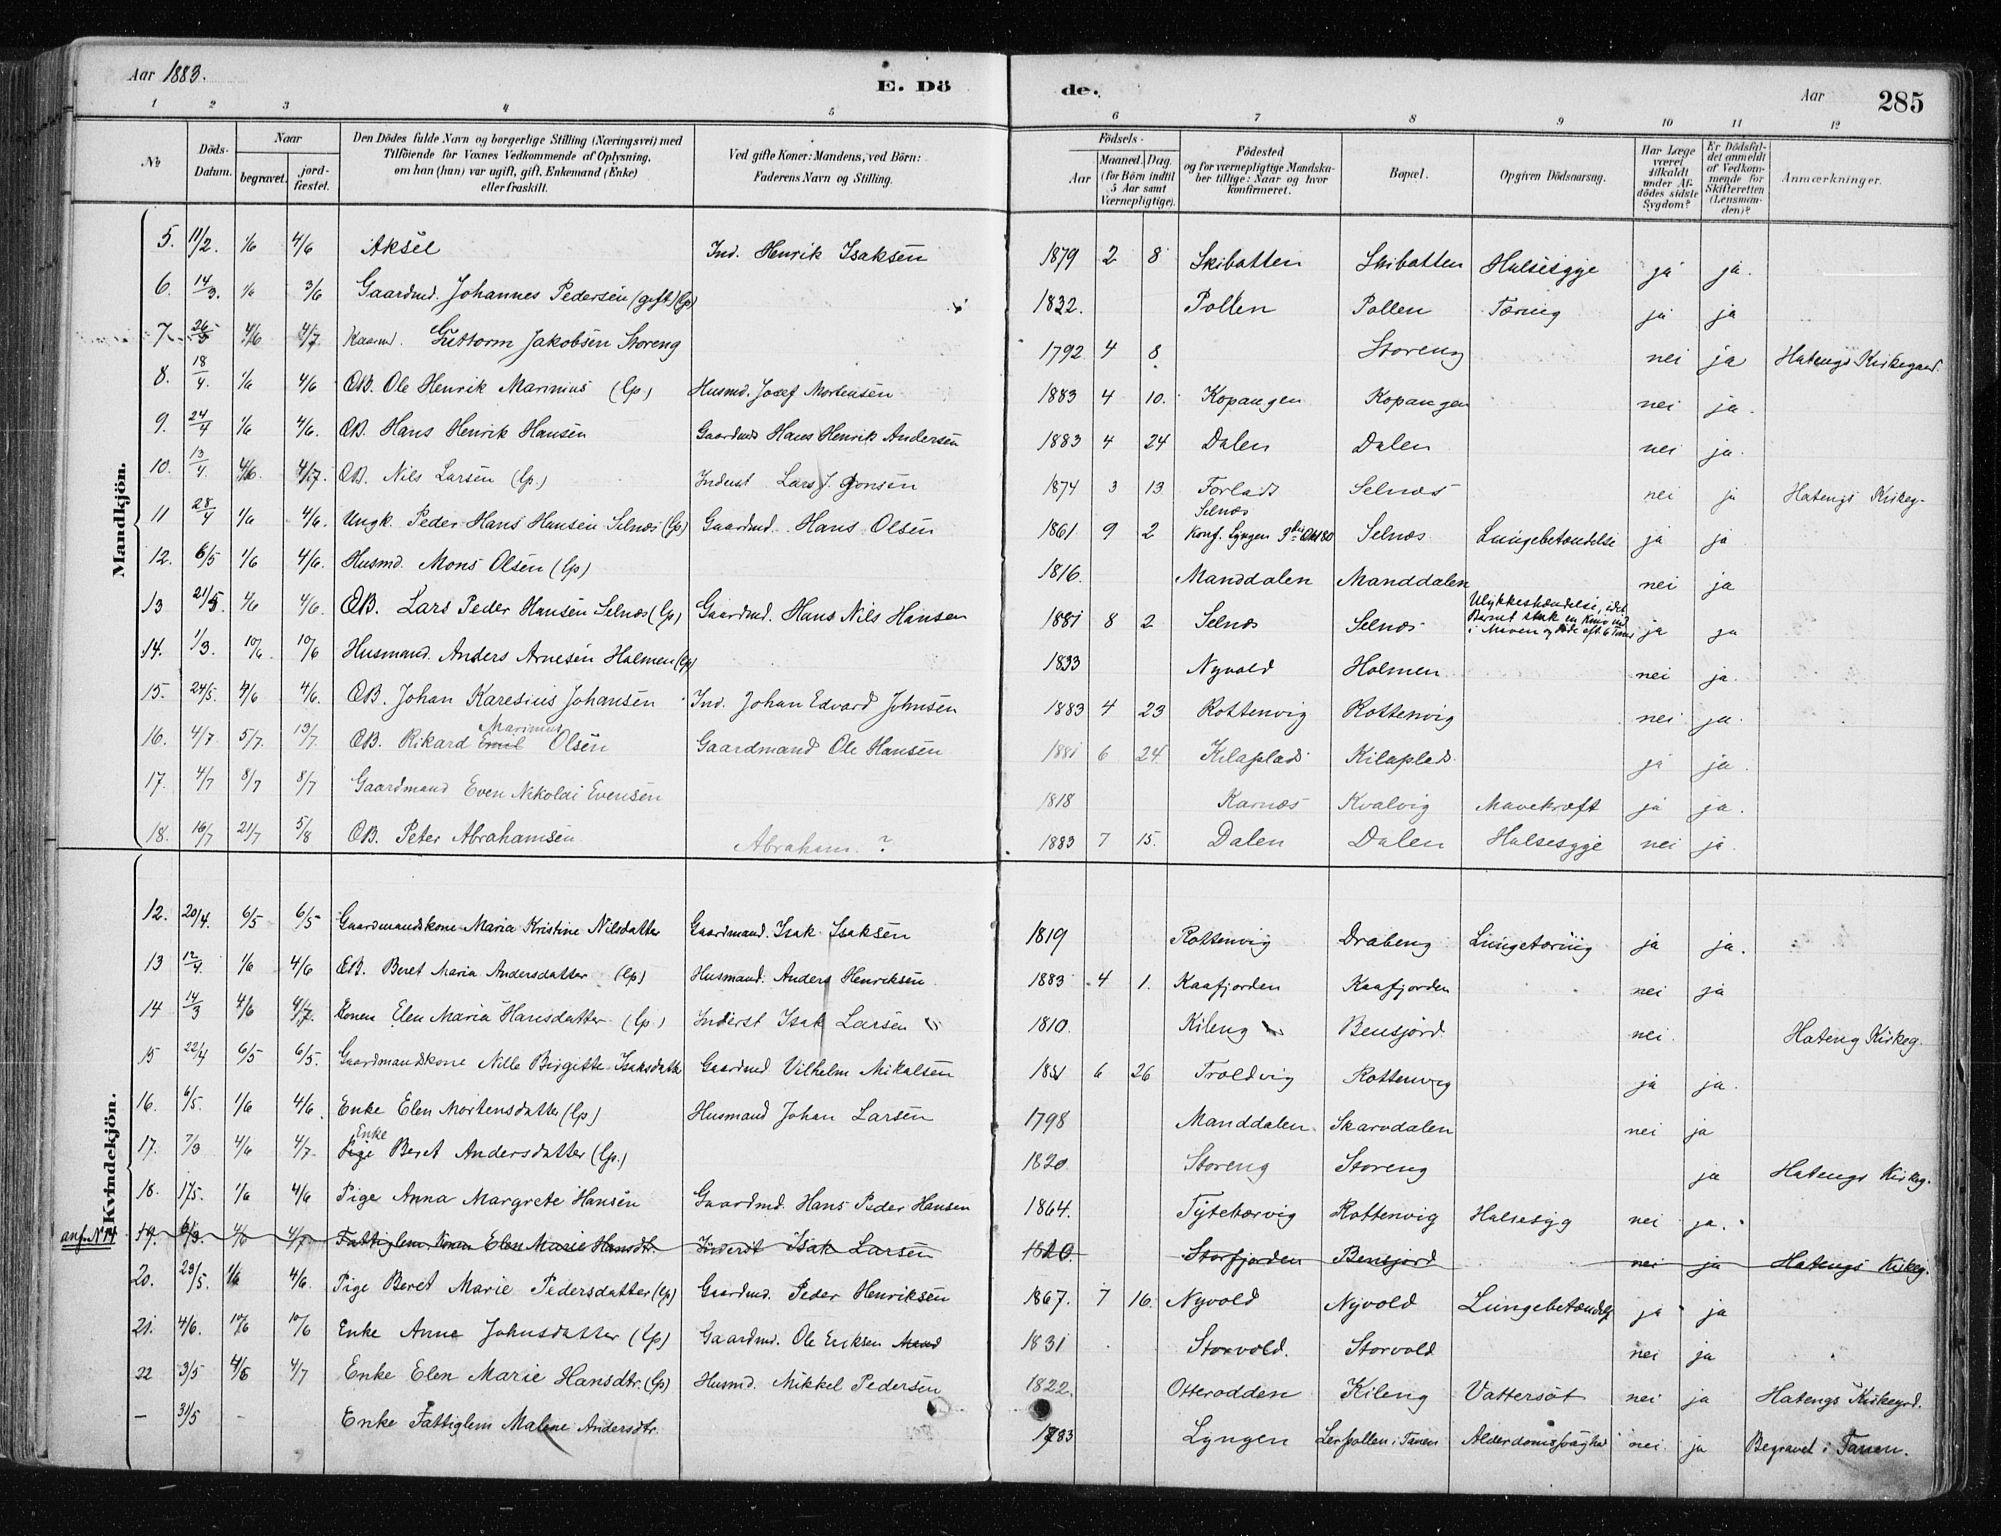 Aar 1883.
E. Dö
de.
Aar
285
1 2 3 4 5 6 7 8 9 10 11 12
No
Döds-Datum.
Naar
begravet.
jord-fæstet.
Den Dödes fulde Navn og borgerlige Stilling (Næringsvei) med
Tilföiende for Voxnes Vedkommende af Oplysning,
om han (hun) var ugift, gift, Enkemand (Enke)
eller fraskilt.
Ved gifte Koner: Mandens, ved Börn:
Faderens Navn og Stilling.
Födsels-
Aar
Maaned. Dag.
(for Börn indtil
5 Aar samt
Værnepligtige).
Födested
og for værnepligtige Mandska-
ber tillige: Naar og hvor
konfirmeret.
Bopæl.
Opgiven Dödsaarsag.
Har Læge
været
tilkaldt
under Af-
dödes sidste
Sygdom?
Er Dödsfal-
det anmeldt
af Vedkom-
mende for
Skifteretten
(Lensman-
den)?
Anmærkninger.
Mandkjön.
5. 11/2. 1/6 4/6 Aksel Ind. Henrik Isaksen 1879 2 8 Skibotten Skibotten Halsesyge ja ja.
6. 14/3. 1/6 3/6 Gaardmd. Johannes Pedersen (gift) (lp) 1832. Pollen Pollen Tæring ja ja
7. 26/3 4/6 4/7 Kaarmd. Guttorm Jakobsen Storeng 1792 4 8 Storeng nei ja Hatengs Kirkegaard.
8. 18/4. 1/6 4/6 ÆB. Ole Henrik Marinius (lp) Husmd. Josef Mortensen 1883 4 10. Kopangen Kopangen nei ja.
9. 24/4 1/6 4/6. ÆB. Hans Henrik Hansen Gaardmd Hans Henrik Andersen 1883 4 24 Dalen Dalen nei ja.
10. 13/4. 4/6. 4/7. ÆB. Nils Larsen (lp.) Inderst Lars J. Jonsen 1874 3 13 Forlads Selnæs nei ja Hatengs Kirkeg.
11 28/4 1/6 4/6. Ungk. Peder Hans Hansen Selnæs (lp) Gaardmd. Hans Olsen 1861 9 2 Selnæs Konf. Lyngen 3die Okt 80 Selnæs Lungebetændelse ja ja
12. 6/5 1/6 4/6. Husmd. Mons Olsen (lp) 1816. Manddalen Manddalen nei ja
13 21/5. 4/6 4/6. ÆB. Lars Peder Hansen Selnæs (lp) Gaardmd. Hans Nils Hansen 1881 8 2 Selnæs Selnæs Ulykkeshændelse, idet Barnet stak en Kniv ind i Maven og døde eft. 6 Timer ja ja
14. 1/3. 10/6 10/6 Husmand. Anders Arnesen Holmen (lp) 1833 Nyvold Holmen nei ja.
15. 24/5. 4/6 4/6. ÆB. Johan Karesius Johansen Ind. Johan Edvard Johnsen 1883 4 23 Rottenvig Rottenvig nei ja.
16. 4/7 5/7. 13/7 ÆB. Rikard Emil Marinius Olsen Gaardmand Ole Hansen 1881 6 24 Kilaplads Kilaplads. ja ja.
17. 4/7 8/7 8/7 Gaardmand Even Nikolai Evensen 1818 Karnæs Kvalvig Mavekræft ja ja.
18. 16/7 21/7 5/8 ÆB. Peter Abrahamsen Abraham. ? 1883 7 15. Dalen Dalen Halsesyge nei ja.
Kvindekjön.
12. 20/4. 6/5 6/5 Gaardmandskone Maria Kristine Nilsdatter Gaardmand. Isak Isaksen 1819 Rottenvig Drabeng Lungetæring ja ja.
13 12/4. 1/6 4/6 ÆB. Beret Maria Andersdatter (lp) Husmand. Anders Henriksen 1883 4 1. Kaafjorden Kaafjorden nei ja
14 14/3 4/6 4/7. Konen Elen Maria Hansdatter (lp) Inderst Isak Larsen 1810. Kileng Bensjord. nei. Hateng Kirkeg.
15 22/4 6/5 6/5. Gaardmandskone Nille Birgitte Isaksdatter Gaardmd Vilhelm Mikalsen 1851 6 26 Troldvig Rottenvig ja ja.
16. 6/5. 1/6 4/6. Enke Elen Mortensdatter (lp) Husmand Johan Larsen 1798 Manddalen Skarvdalen nei ja
17. 7/3 4/6 4/7. Pige Enke Beret Andersdatter (lp.) 1820 Storeng Storeng ja Hatengs Kirkeg.
18. 17/5. 1/6 4/6 Pige Anna Margrete Hansen Gaardmd. Hans Peder Hansen 1864. Tytebærvig Rottenvig Halsesyg nei ja.
anf. N 14 19. 6/3. 4/6 4/7 Fattiglem Konen Elen Marie Hansdtr. Inderst Isak Larsen 1810. Storfjorden Bensjord nei ja Hatengs Kirkeg.
20. 23/5. 1/6 4/6. Pige Beret Marie Pedersdatter (lp) Gaardmd. Peder Henriksen 1867. 7 16. Nyvold Nyvold Lungebetændelse ja ja
21. 4/6. 10/6 10/6 Enke Anne Johnsdatter (lp) Gaardmd. Ole Eriksen 1831 Storvold. Storvold nei ja
22 3/5 4/6 4/7 Enke Elen Marie Hansdtr. (lp) Husmd. Mikkel Pedersen 1822. Otterodden Kileng Vattersot nei ja Hatengs Kirkegrd.
— 31/5 - Enke Fattiglem Malene Andersdtr. 1783 Lyngen Leirpollen i Tanen Alderdomssvaghed nei ja Begravet i Tanen.